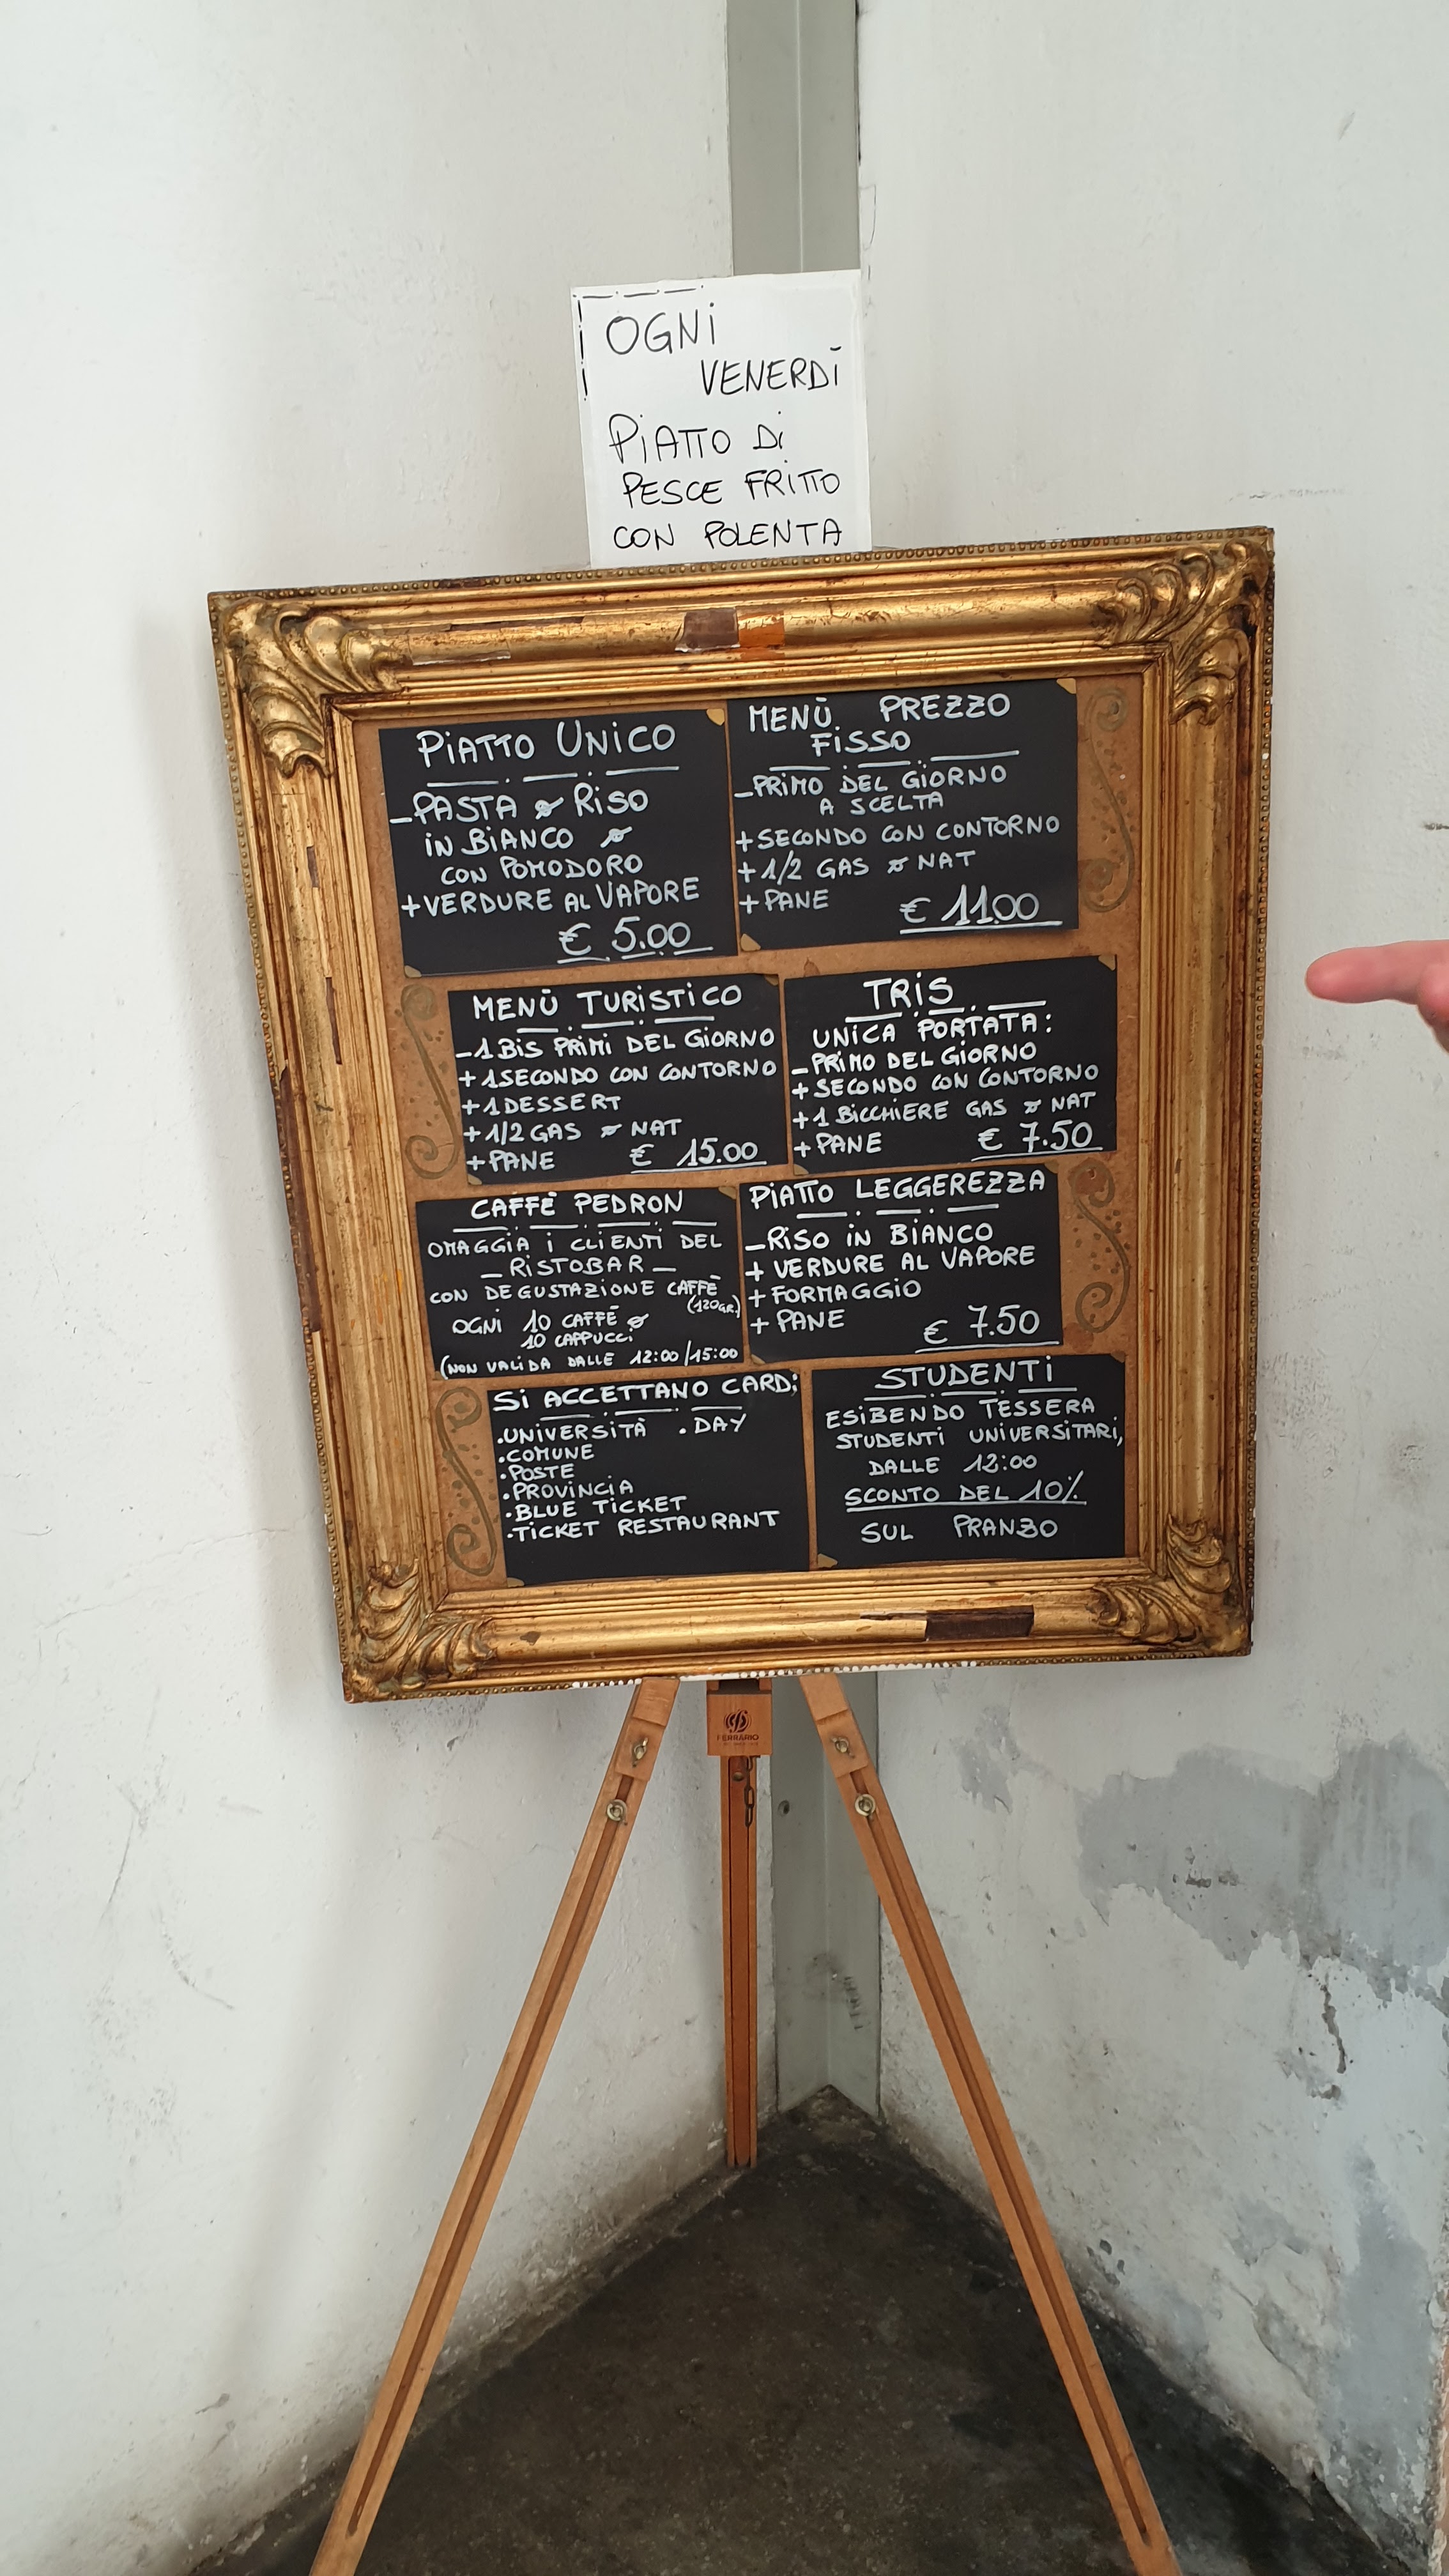 OGNI
VENERDÌ
PIATTO DI
PESCE FRITTO
CON POLENTA
PIATTO UNICO
-PASTA o RISO
IN BIANCO o
CON POMODORO
+VERDURE AL VAPORE
€ 5.00
MENÙ PREZZO
FISSO
-PRIMO DEL GIORNO
A SCELTA
+SECONDO CON CONTORNO
+1/2 GAS o NAT
+PANE € 11.00
MENÙ TURISTICO
-1 BIS PRIMI DEL GIORNO
+1 SECONDO CON CONTORNO
+1 DESSERT
+1/2 GAS o NAT
+PANE € 15.00
TRIS
UNICA PORTATA:
-PRIMO DEL GIORNO
+SECONDO CON CONTORNO
+1 BICCHIERE GAS o NAT
+PANE € 7.50
CAFFÈ PEDRON
OMAGGIA I CLIENTI DEL
- RISTOBAR -
CON DEGUSTAZIONE CAFFÈ
(120GR.)
OGNI 10 CAFFÈ o
10 CAPPUCCI
(NON VALIDA DALLE 12:00/15:00
PIATTO LEGGEREZZA
-RISO IN BIANCO
+ VERDURE AL VAPORE
+ FORMAGGIO
+ PANE € 7.50
SI ACCETTANO CARD:
.UNIVERSITÀ .DAY
.COMUNE
.POSTE
.PROVINCIA
.BLUE TICKET
.TICKET RESTAURANT
STUDENTI
ESIBENDO TESSERA
STUDENTI UNIVERSITARI,
DALLE 12:00
SCONTO DEL 10%
SUL PRANZO
FERRARIO